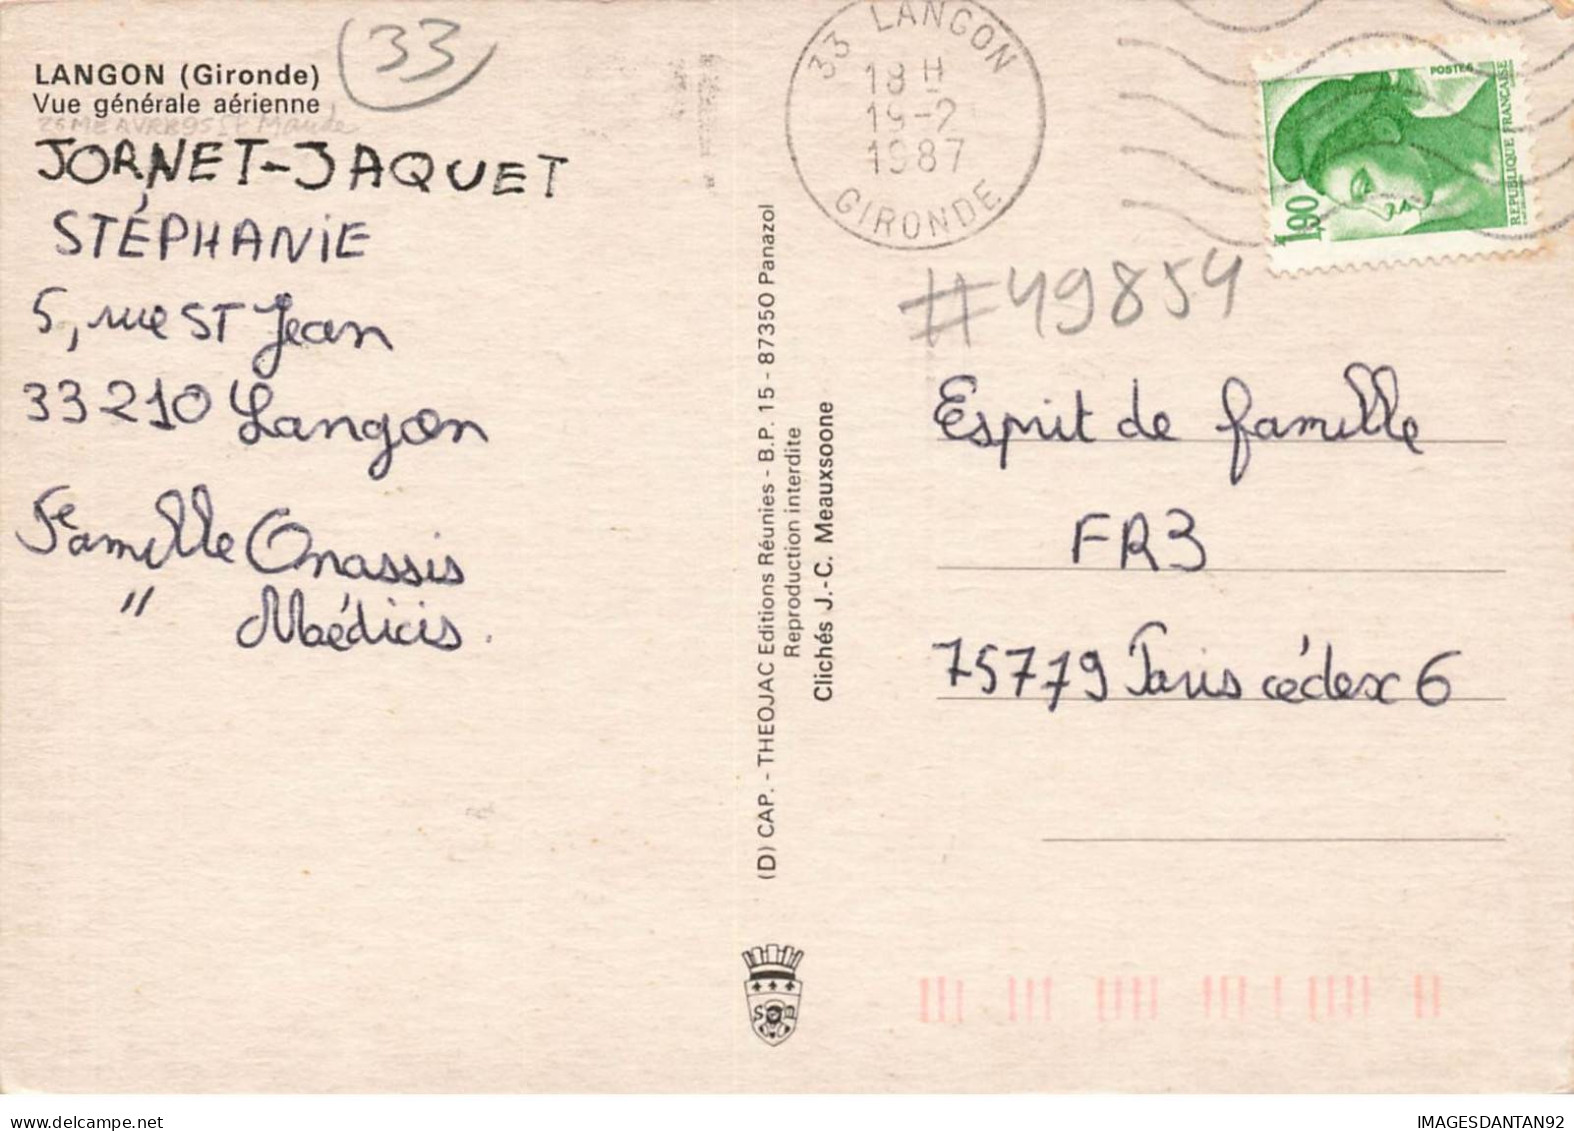 LANGON (Gironde)
Vue générale aérienne
33
JORNET-JAQUET
STÉPHANIE
5, rue ST Jean
33210 Langon
Famille Onassis
" Maédicis.
(D) CAP. - THEOJAC Editions Réunies - B.P. 15 - 87350 Panazol
Reproduction interdite
Clichés J.-C. Meauxsoone
33 LANGON
18 H
19-2
1987
GIRONDE
POSTES
REPUBLIQUE FRANÇAISE
1,90
#49854
Esprit de famille
FR3
75779 Paris cédex 6
IMAGESDANTAN92